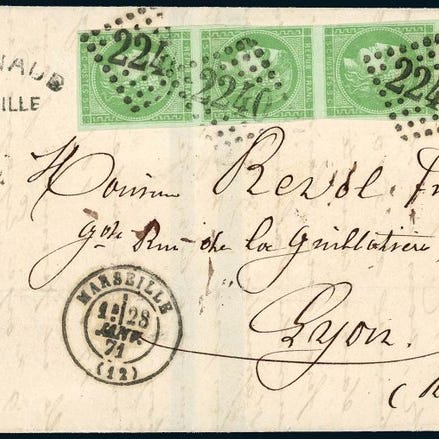 NAUD
ILLE
224
2240
224
Monsieur Revol
Rue de la Guillotière
Lyon.
MARSEILLE
1ᵉ 28
JANV.
71
(12)